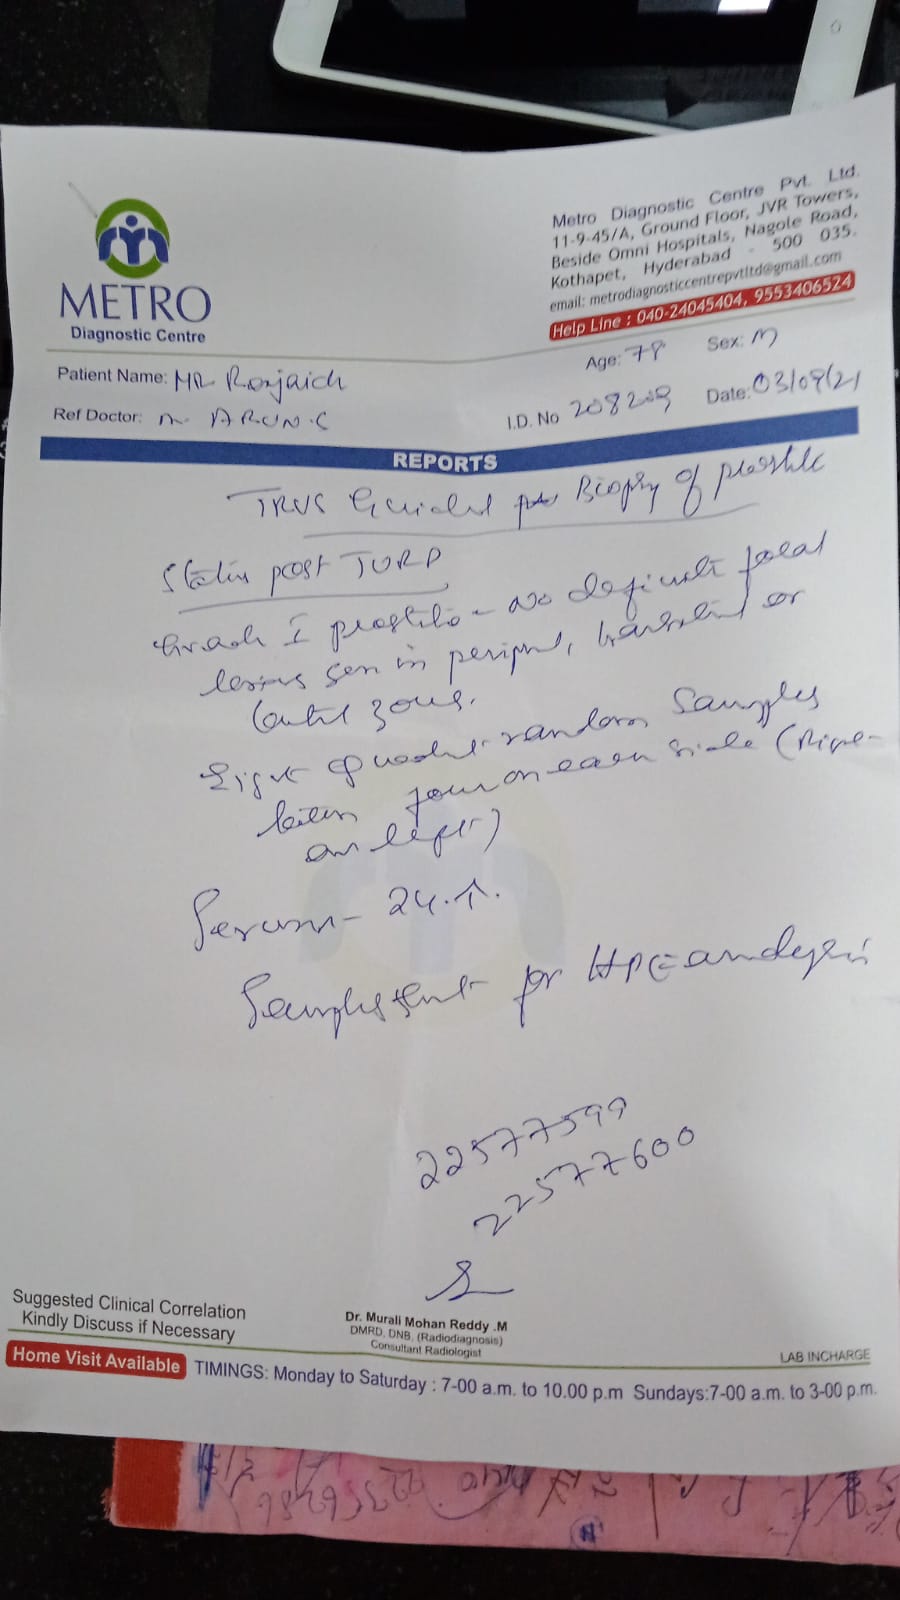 METRO
Diagnostic Centre
Metro Diagnostic Centre Pvt. Ltd.
11-9-45/A, Ground Floor, JVR Towers,
Beside Omni Hospitals, Nagole Road,
Kothapet, Hyderabad - 500 035.
email: metrodiagnosticcentrepvtltd@gmail.com
Help Line : 040-24045404, 9553406524
Patient Name: Mr
Age: 78 Sex: M
Ref Doctor: ARUN
I.D. No 208209 Date: 03/09/21
REPORTS
TRUS Guided Biopsy of
post TURP
Grade I - No definite focal
seen in or
zones.
random Samples
four on each side
on left)
Serum - 24.
Sample sent for HPE analysis
22577599
22577600
Suggested Clinical Correlation
Kindly Discuss if Necessary
Dr. Murali Mohan Reddy .M
DMRD, DNB, (Radiodiagnosis)
Consultant Radiologist
LAB INCHARGE
Home Visit Available TIMINGS: Monday to Saturday : 7-00 a.m. to 10.00 p.m Sundays:7-00 a.m. to 3-00 p.m.